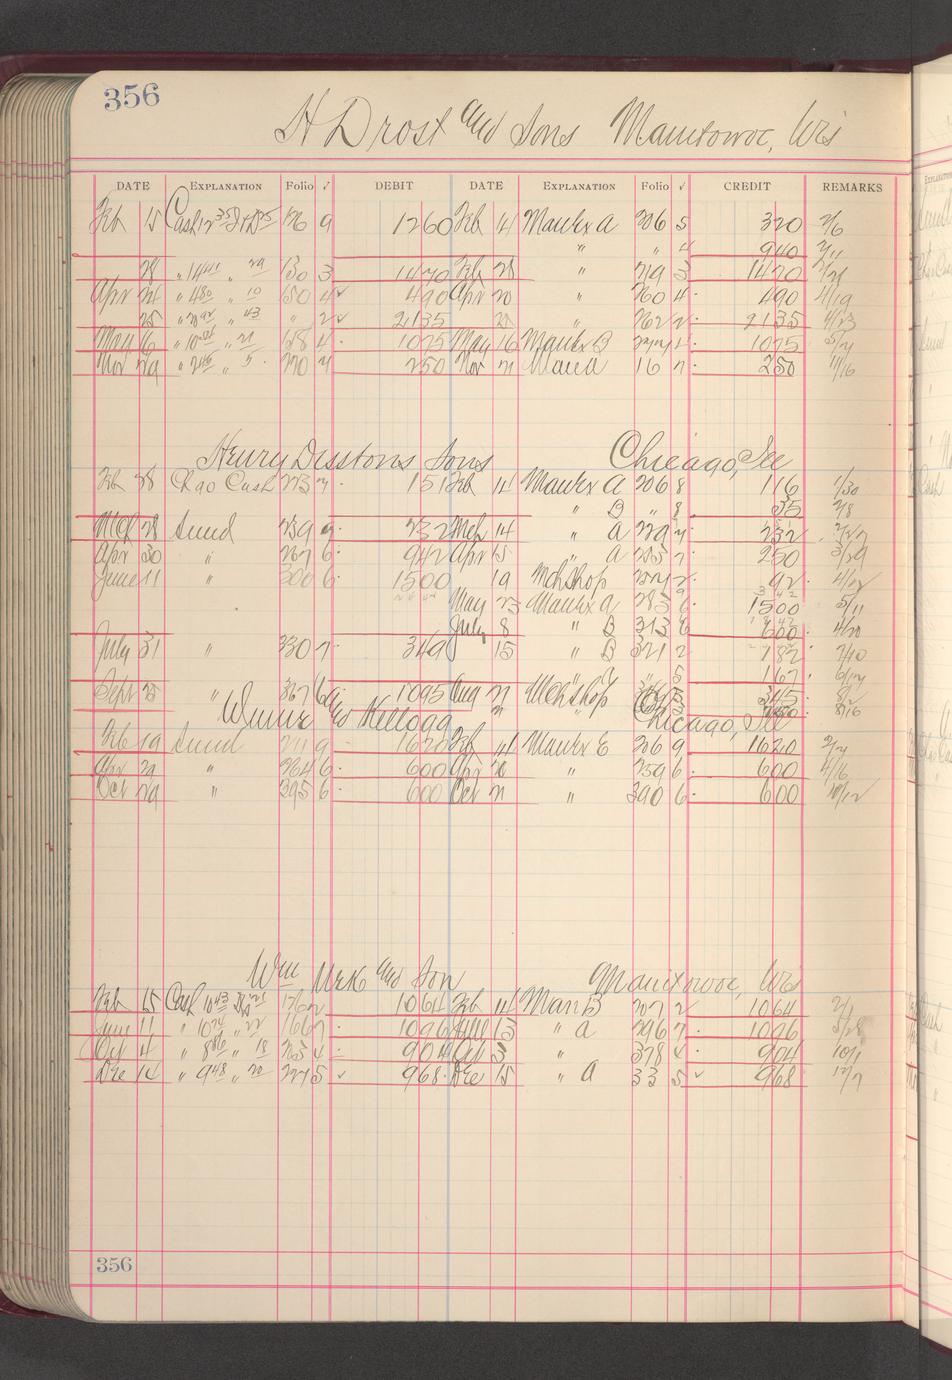 356
H Drost and Sons Manitowoc, Wis
DATE EXPLANATION Folio √ DEBIT DATE EXPLANATION Folio √ CREDIT REMARKS
Feb 15 Cash 12 35 Dis 25 176 9 1260 Feb 14 Manfx A 206 5 320 2/6
" " 4 940 2/11
28 " 14 41 " 29 180 3 1470 Feb 28 " 219 3 1470 2/21
Apr 24 " 4 80 " 10 150 4 490 Apr 20 " 260 4 490 4/19
25 " 20 92 " 43 " 2 2135 25 " 262 2 2135 4/23
May 6 " 10 54 " 21 158 4 1075 May 16 Manfx B 274 4 1075 5/7
Nov 29 " 2 45 " 5 220 7 250 Nov 21 Man A 16 7 250 11/16
Henry Disstons Sons Chicago, Ill
Feb 28 Chgo Cash 223 7 151 Feb 14 Manfx A 206 8 116 1/30
" B " 8 35 2/8
Mch 28 Sund 239 9 232 Mch 14 " A 229 7 232 2/27
Apr 30 " 267 6 942 Apr 5 " A 253 7 250 3/29
June 11 " 300 6 1500 19 Mch Shop 257 2 92 4/12
May 23 Manfx A 283 6 1500 5/11
July 8 " B 313 6 600 4/20
July 31 " 330 7 349 15 " B 321 2 182 7/10
5 167 6/17
Sept 25 " 367 6 1095 Aug 21 Mch Shop 345 8/
" 8/16
and Kellogg Chicago, Ill
Feb 19 Sund 211 9 1620 Feb 14 Manfx E 206 9 1620 2/7
Apr 29 " 264 6 600 Apr 20 " 259 6 600 4/16
Oct 29 " 395 6 600 Oct 21 " 390 6 600 10/12
Wm and Son Manitowoc, Wis
Feb 15 Cash 10 43 Dis 21 176 2 1064 Feb 14 Man B 207 2 1064 2/1
June 11 " 10 74 " 22 166 7 1096 13 " A 296 7 1096 5/28
Oct 4 " 8 86 " 18 203 4 904 Oct 3 " 378 4 904 10/1
Dec 14 " 9 48 " 20 227 5 968 Dec 15 " A 33 5 968 12/7
356